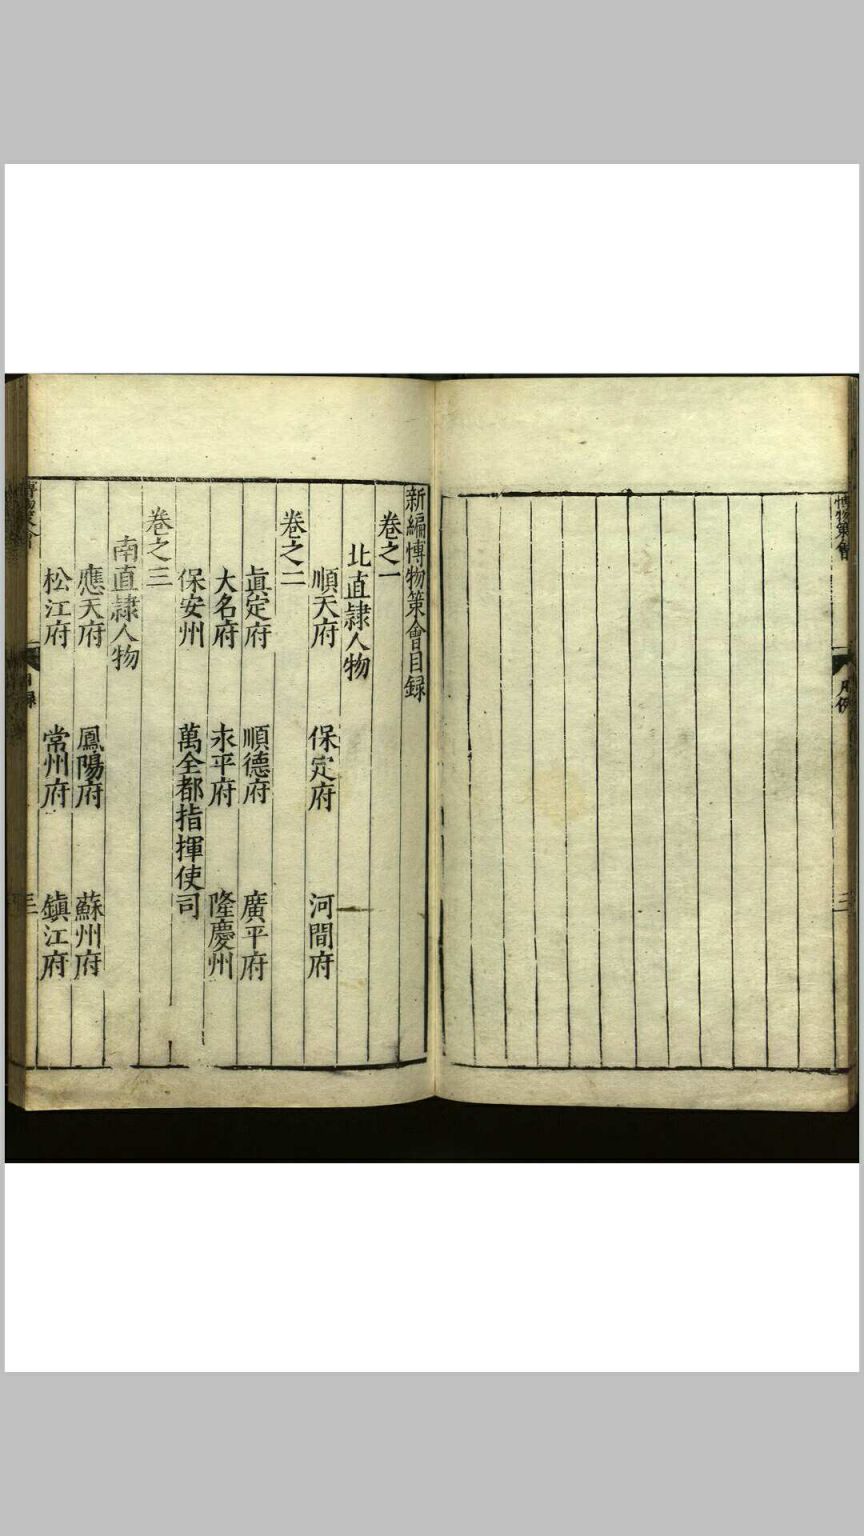 博物策會
凡例
二
新編博物策會目録
卷之一
北直隷人物
順天府 保定府 河間府
卷之二
眞定府 順德府 廣平府
大名府 永平府 隆慶州
保安州 萬全都指揮使司
卷之三
南直隷人物
應天府 鳳陽府 蘇州府
松江府 常州府 鎮江府
博物策會
目録